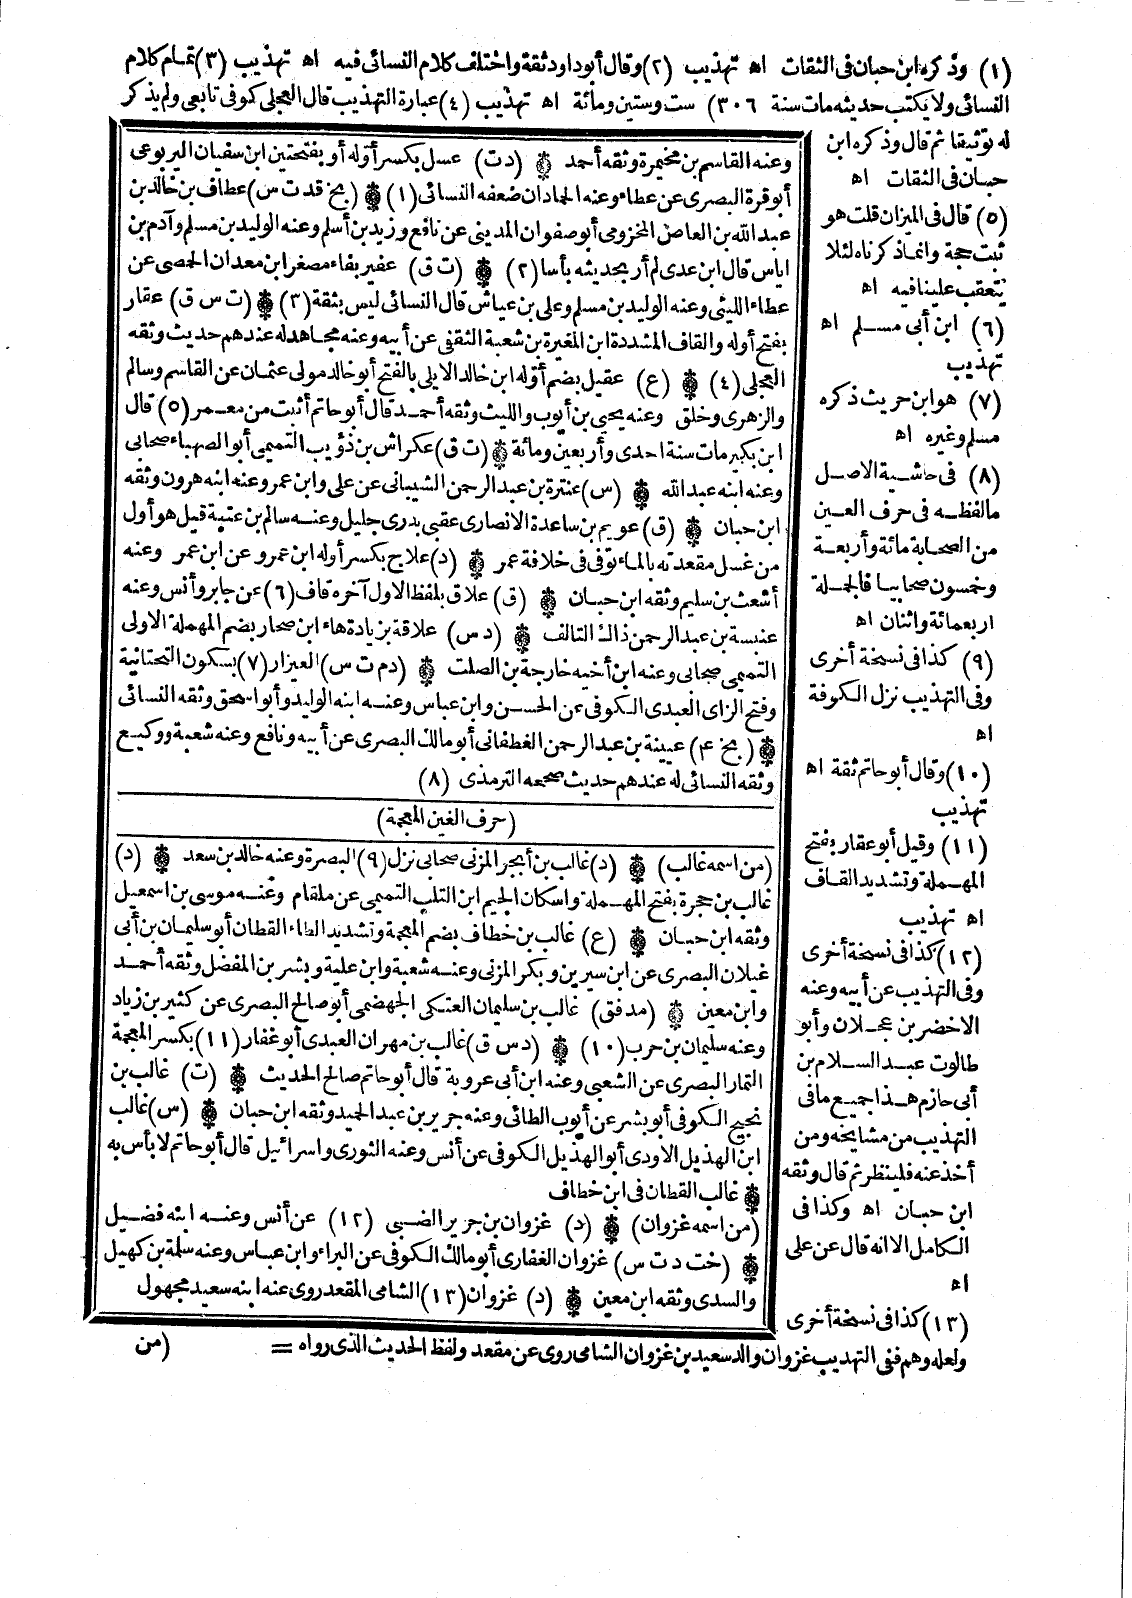 (١) وذكره ابن حبان فى الثقات اه تهذيب (٢) وقال أبوداود ثقة واختلف كلام النسائى فيه اه تهذيب (٣) تمام كلام
النسائى ولا يكتب حديثه مات سنة (٣٠٦) ست وستين ومائة اه تهذيب (٤) عبارة التهذيب قال العجلى كوفى تابعى ولم يذكر
له توثيقا ثم قال وذكره ابن
حبان فى الثقات اه
(٥) قال فى الميزان قلت هو
ثبت حجة وانما ذكرناه لئلا
يتعقب علينا فيه اه
(٦) ابن أبى مسلم اه
تهذيب
(٧) هو ابن حريث ذكره
مسلم وغيره اه
(٨) فى حاشية الاصل
مالفظه فى حرف العين
من الصحابة مائة وأربعة
وخمسون صحابيا فالجملة
اربعمائة واثنان اه
(٩) كذا فى نسخة أخرى
وفى التهذيب نزل الكوفة
اه
(١٠) وقال أبو حاتم ثقة اه
تهذيب
(١١) وقيل أبو عقار بفتح
المهملة وتشديد القاف
اه تهذيب
(١٢) كذا فى نسخة أخرى
وفى التهذيب عن أبيه وعنه
الاخضر بن عجلان وأبو
طالوت عبد السلام بن
أبى حازم هذا جميع ما فى
التهذيب من مشايخه ومن
أخذ عنه فلينظر ثم قال وثقه
ابن حبان اه وكذا فى
الكامل الا انه قال عن على
اه
(١٣) كذا فى نسخة أخرى
وعنه القاسم بن مخيمرة وثقه أحمد (د ت) عسل بكسر أوله أو بفتحتين ابن سفيان اليربوعى
أبو قرة البصرى عن عطاء وعنه الحمادان ضعفه النسائى (١) (بخ قد ت س) عطاف بن خالد بن
عبد الله بن العاص المخزومى أبو صفوان المدينى عن نافع وزيد بن أسلم وعنه الوليد بن مسلم وآدم بن
اياس قال ابن عدى لم أر بحديثه بأسا (٢) (ت ق) عفير بفاء مصغر ابن معدان الحمصى عن
عطاء الليثى وعنه الوليد بن مسلم وعلى بن عياش قال النسائى ليس بثقة (٣) (ت س ق) عقار
بفتح أوله والقاف المشددة ابن المغيرة بن شعبة الثقفى عن أبيه وعنه مجاهد له عندهم حديث وثقه
العجلى (٤) (ع) عقيل بضم أوله ابن خالد الايلى بالفتح أبو خالد مولى عثمان عن القاسم وسالم
والزهرى وخلق وعنه يحيى بن أيوب والليث وثقه أحمد قال أبو حاتم أثبت من معمر (٥) قال
ابن بكير مات سنة احدى وأربعين ومائة (ت ق) عكراش بن ذؤيب التميمى أبو الصهباء صحابى
وعنه ابنه عبد الله (س) عنترة بن عبد الرحمن الشيبانى عن على وابن عمر وعنه ابنه هرون وثقه
ابن حبان (ق) عويم بن ساعدة الانصارى عقبى بدرى جليل وعنه سالم بن عتبة قيل هو أول
من غسل مقعدته بالماء توفى فى خلافة عمر (د) علاج بكسر أوله ابن عمرو عن ابن عمر وعنه
أشعث بن سليم وثقه ابن حبان (ق) علاق بلفظ الاول آخره قاف (٦) عن جابر وأنس وعنه
عنبسة بن عبد الرحمن ذاك التالف (د س) علاقة بزيادة هاء ابن صحار بضم المهملة الاولى
التميمى صحابى وعنه ابن أخيه خارجة بن الصلت (د م ت س) العيزار (٧) بسكون التحتانية
وفتح الزاى العبدى الكوفى عن الحسن وابن عباس وعنه ابنه الوليد وأبو اسحق وثقه النسائى
(بخ ٤م) عيينة بن عبد الرحمن الغطفانى أبو مالك البصرى عن أبيه ونافع وعنه شعبة ووكيع
وثقه النسائى له عندهم حديث صححه الترمذى (٨)
(حرف الغين المعجمة)
(من اسمه غالب) (د) غالب بن أبجر المزنى صحابى نزل (٩) البصرة وعنه خالد بن سعد (د)
غالب بن حجرة بفتح المهملة واسكان الجيم ابن التلب التميمى عن ملقام وعنه موسى بن اسمعيل
وثقه ابن حبان (ع) غالب بن خطاف بضم المعجمة وتشديد الطاء القطان أبو سليمان بن أبى
غيلان البصرى عن ابن سيرين وبكر المزنى وعنه شعبة وابن علية وبشر بن المفضل وثقه أحمد
وابن معين (مد فق) غالب بن سليمان العتكى الجهضمى أبو صالح البصرى عن كثير بن زياد
وعنه سليمان بن حرب (١٠) (د س ق) غالب بن مهران العبدى أبو غفار (١١) بكسر المعجمة
التمار البصرى عن الشعبى وعنه ابن أبى عروبة قال أبو حاتم صالح الحديث (ت) غالب بن
نجيح الكوفى أبو بشر عن أيوب الطائى وعنه جرير بن عبد الحميد وثقه ابن حبان (س) غالب
ابن الهذيل الاودى أبو الهذيل الكوفى عن أنس وعنه الثورى واسرائيل قال أبو حاتم لا بأس به
غالب القطان فى ابن خطاف
(من اسمه غزوان) (د) غزوان بن جرير الضبى (١٢) عن أنس وعنه ابنه فضيل
(خت د ت س) غزوان الغفارى أبو مالك الكوفى عن البراء وابن عباس وعنه سلمة بن كهيل
والسدى وثقه ابن معين (د) غزوان (١٣) الشامى المقعد روى عنه ابنه سعيد مجهول
ولعله وهم ففى التهذيب غزوان والد سعيد بن غزوان الشامى روى عن مقعد ولفظ الحديث الذى رواه = (من